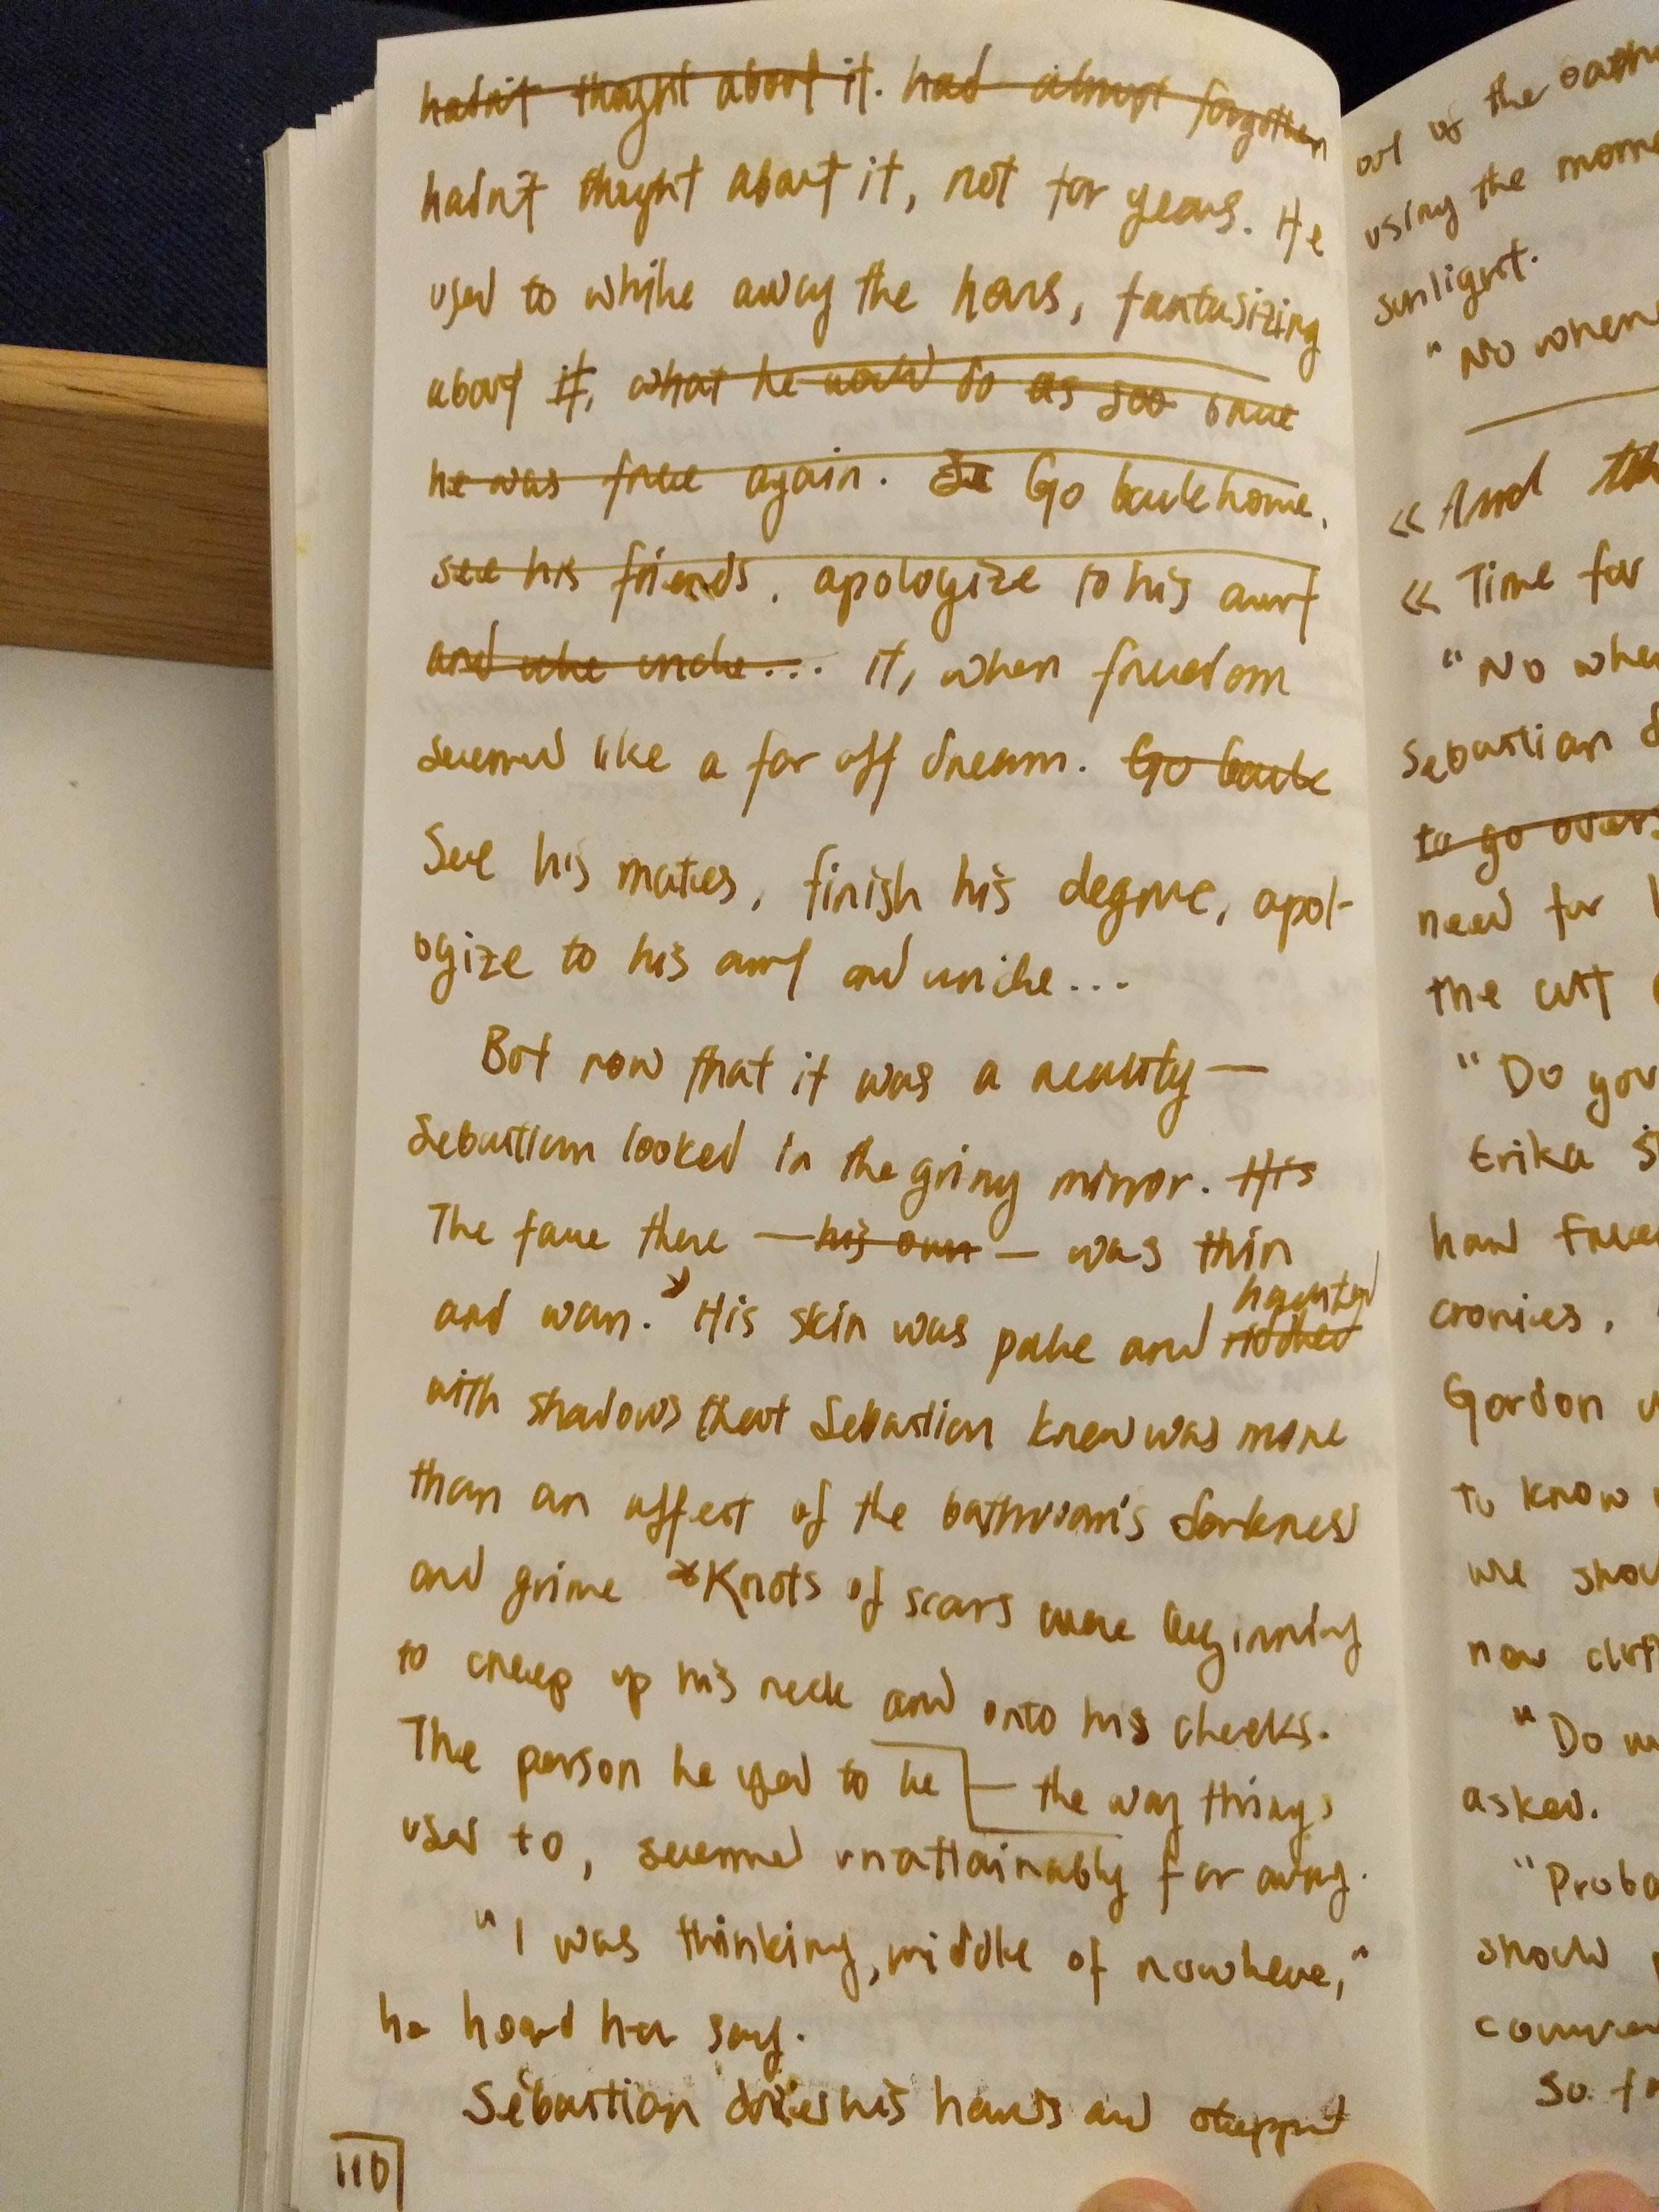 hadn't thought about it. had almost forgotten
hadn't thought about it, not for years. He
used to while away the hours, fantasizing
about it, what he would do as soo once
he was free again. Go back home,
see his friends, apologize to his aunt
and uncle... it, when freedom
seemed like a far off dream. Go back
See his mates, finish his degree, apol-
ogize to his aunt and uncle...
But now that it was a reality —
Sebastian looked in the grimy mirror. His
The face there — his own — was thin
haunted
and wan. His skin was pale and riddled
with shadows that Sebastian knew was more
than an affect of the bathroom's darkness
and grime *Knots of scars were beginning
to creep up his neck and onto his cheeks.
The person he used to be — the way things
used to, seemed unattainably far away.
"I was thinking, middle of nowhere,"
he heard her say.
Sebastian dried his hands and stepped
110
out of the
using the
sunlight.
"No
«And
«Time for
"No
Sebastian
to go
need for
the
"Do you
Erika
had
cronies,
Gordon
to know
we
now
"Do
asked.
"
should
So